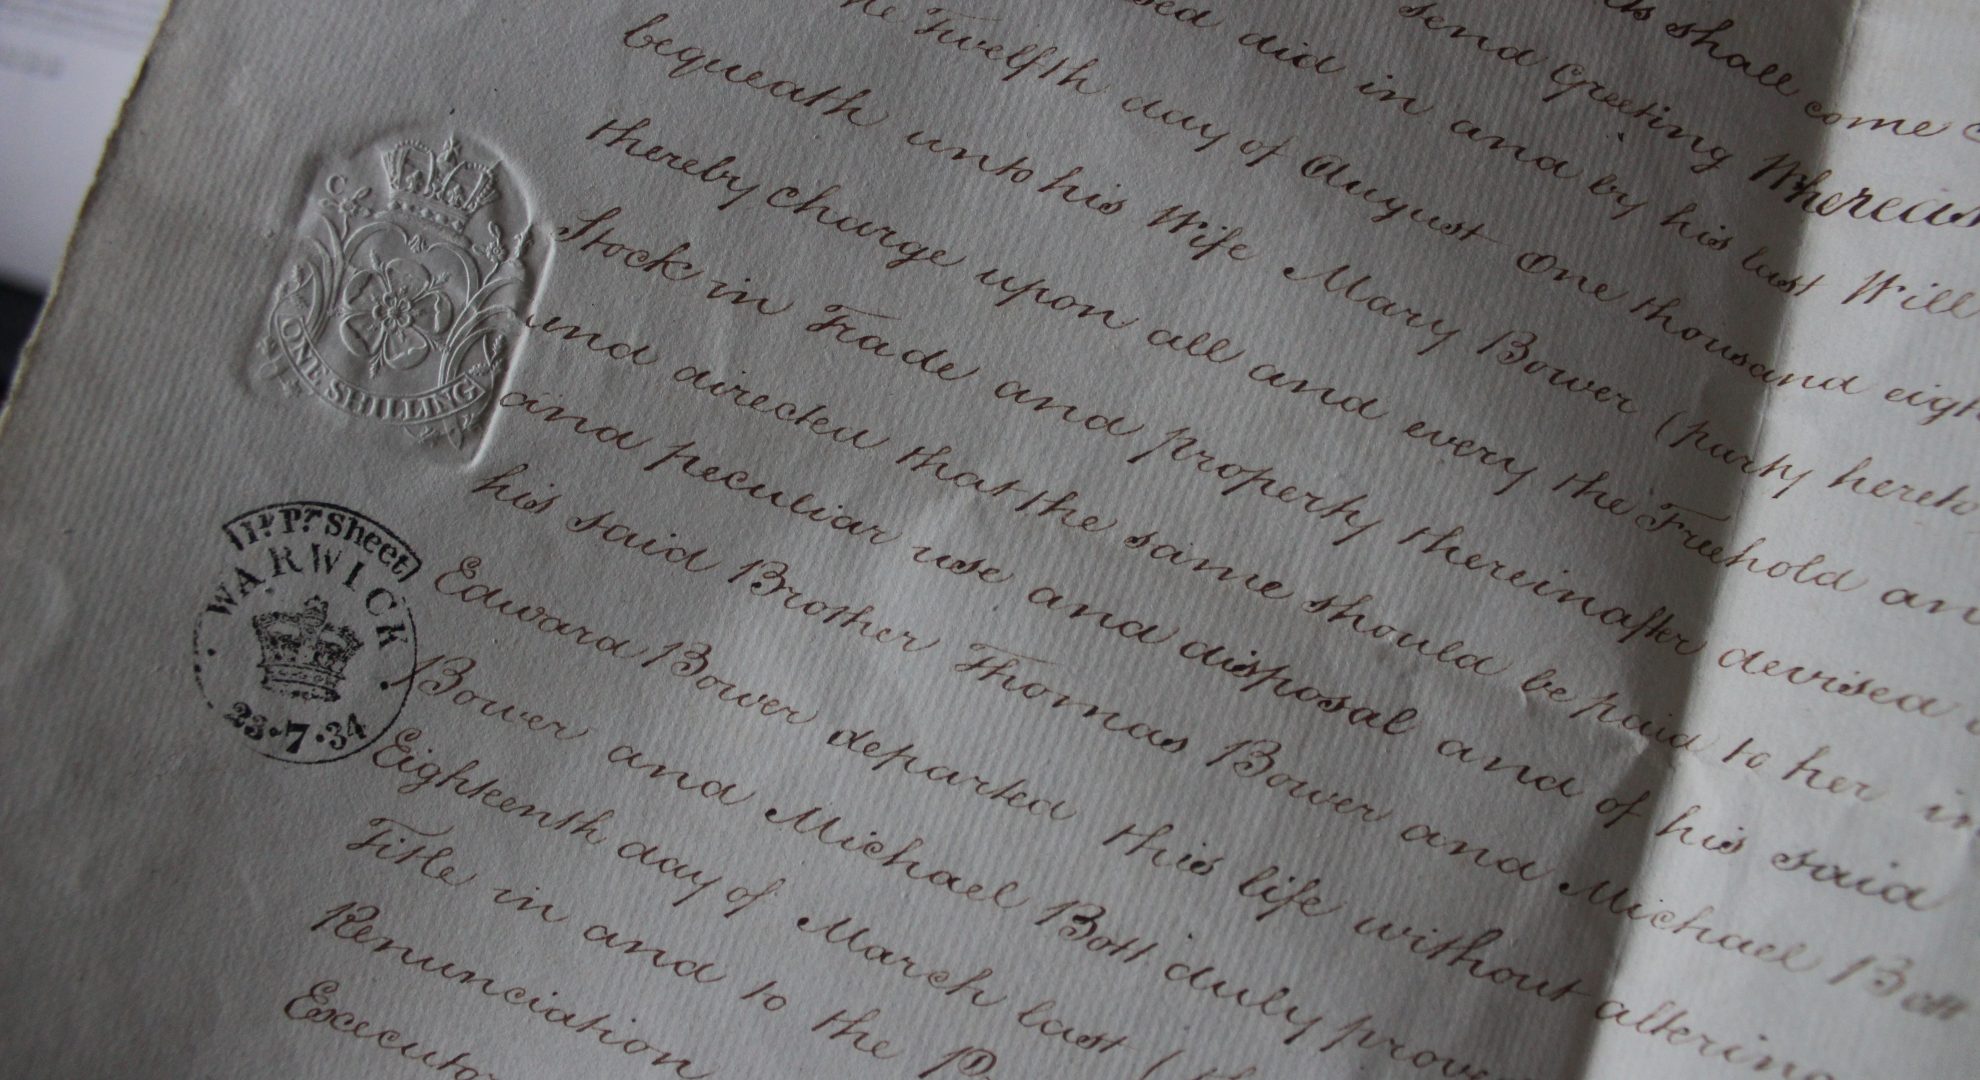 ts shall come
send Greeting Whereas
sed did in and by his last Will
he Twelfth day of August One thousand eigh
bequeath unto his Wife Mary Bower (party hereto
thereby charge upon all and every the Freehold an
Stock in Trade and property thereinafter devised
and directed that the same should be paid to her in
and peculiar use and disposal and of his said
his said Brother Thomas Bower and Michael Bott
Edward Bower departed this life without altering
Bower and Michael Bott duly prove
Eighteenth day of March last (th
Title in and to the
Renunciation
Executo
ONE SHILLING
1d. Pr. Sheet
WARWICK
23·7·34